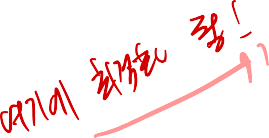 여기에 최적화 중!